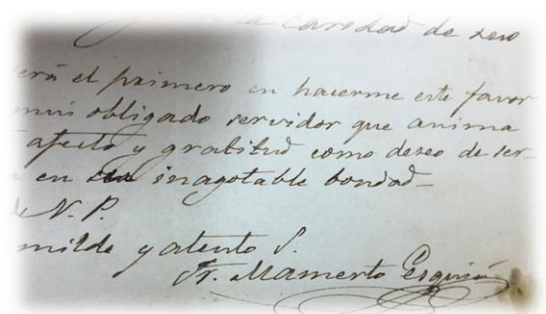 la caridad de seso
será el primero en hacerme este favor
mui obligado servidor que anima
afecto y gratitud como deseo de ser-
en su inagotable bondad-
de N. P.
milde y atento S.
Fr. Mamerto Esquiú